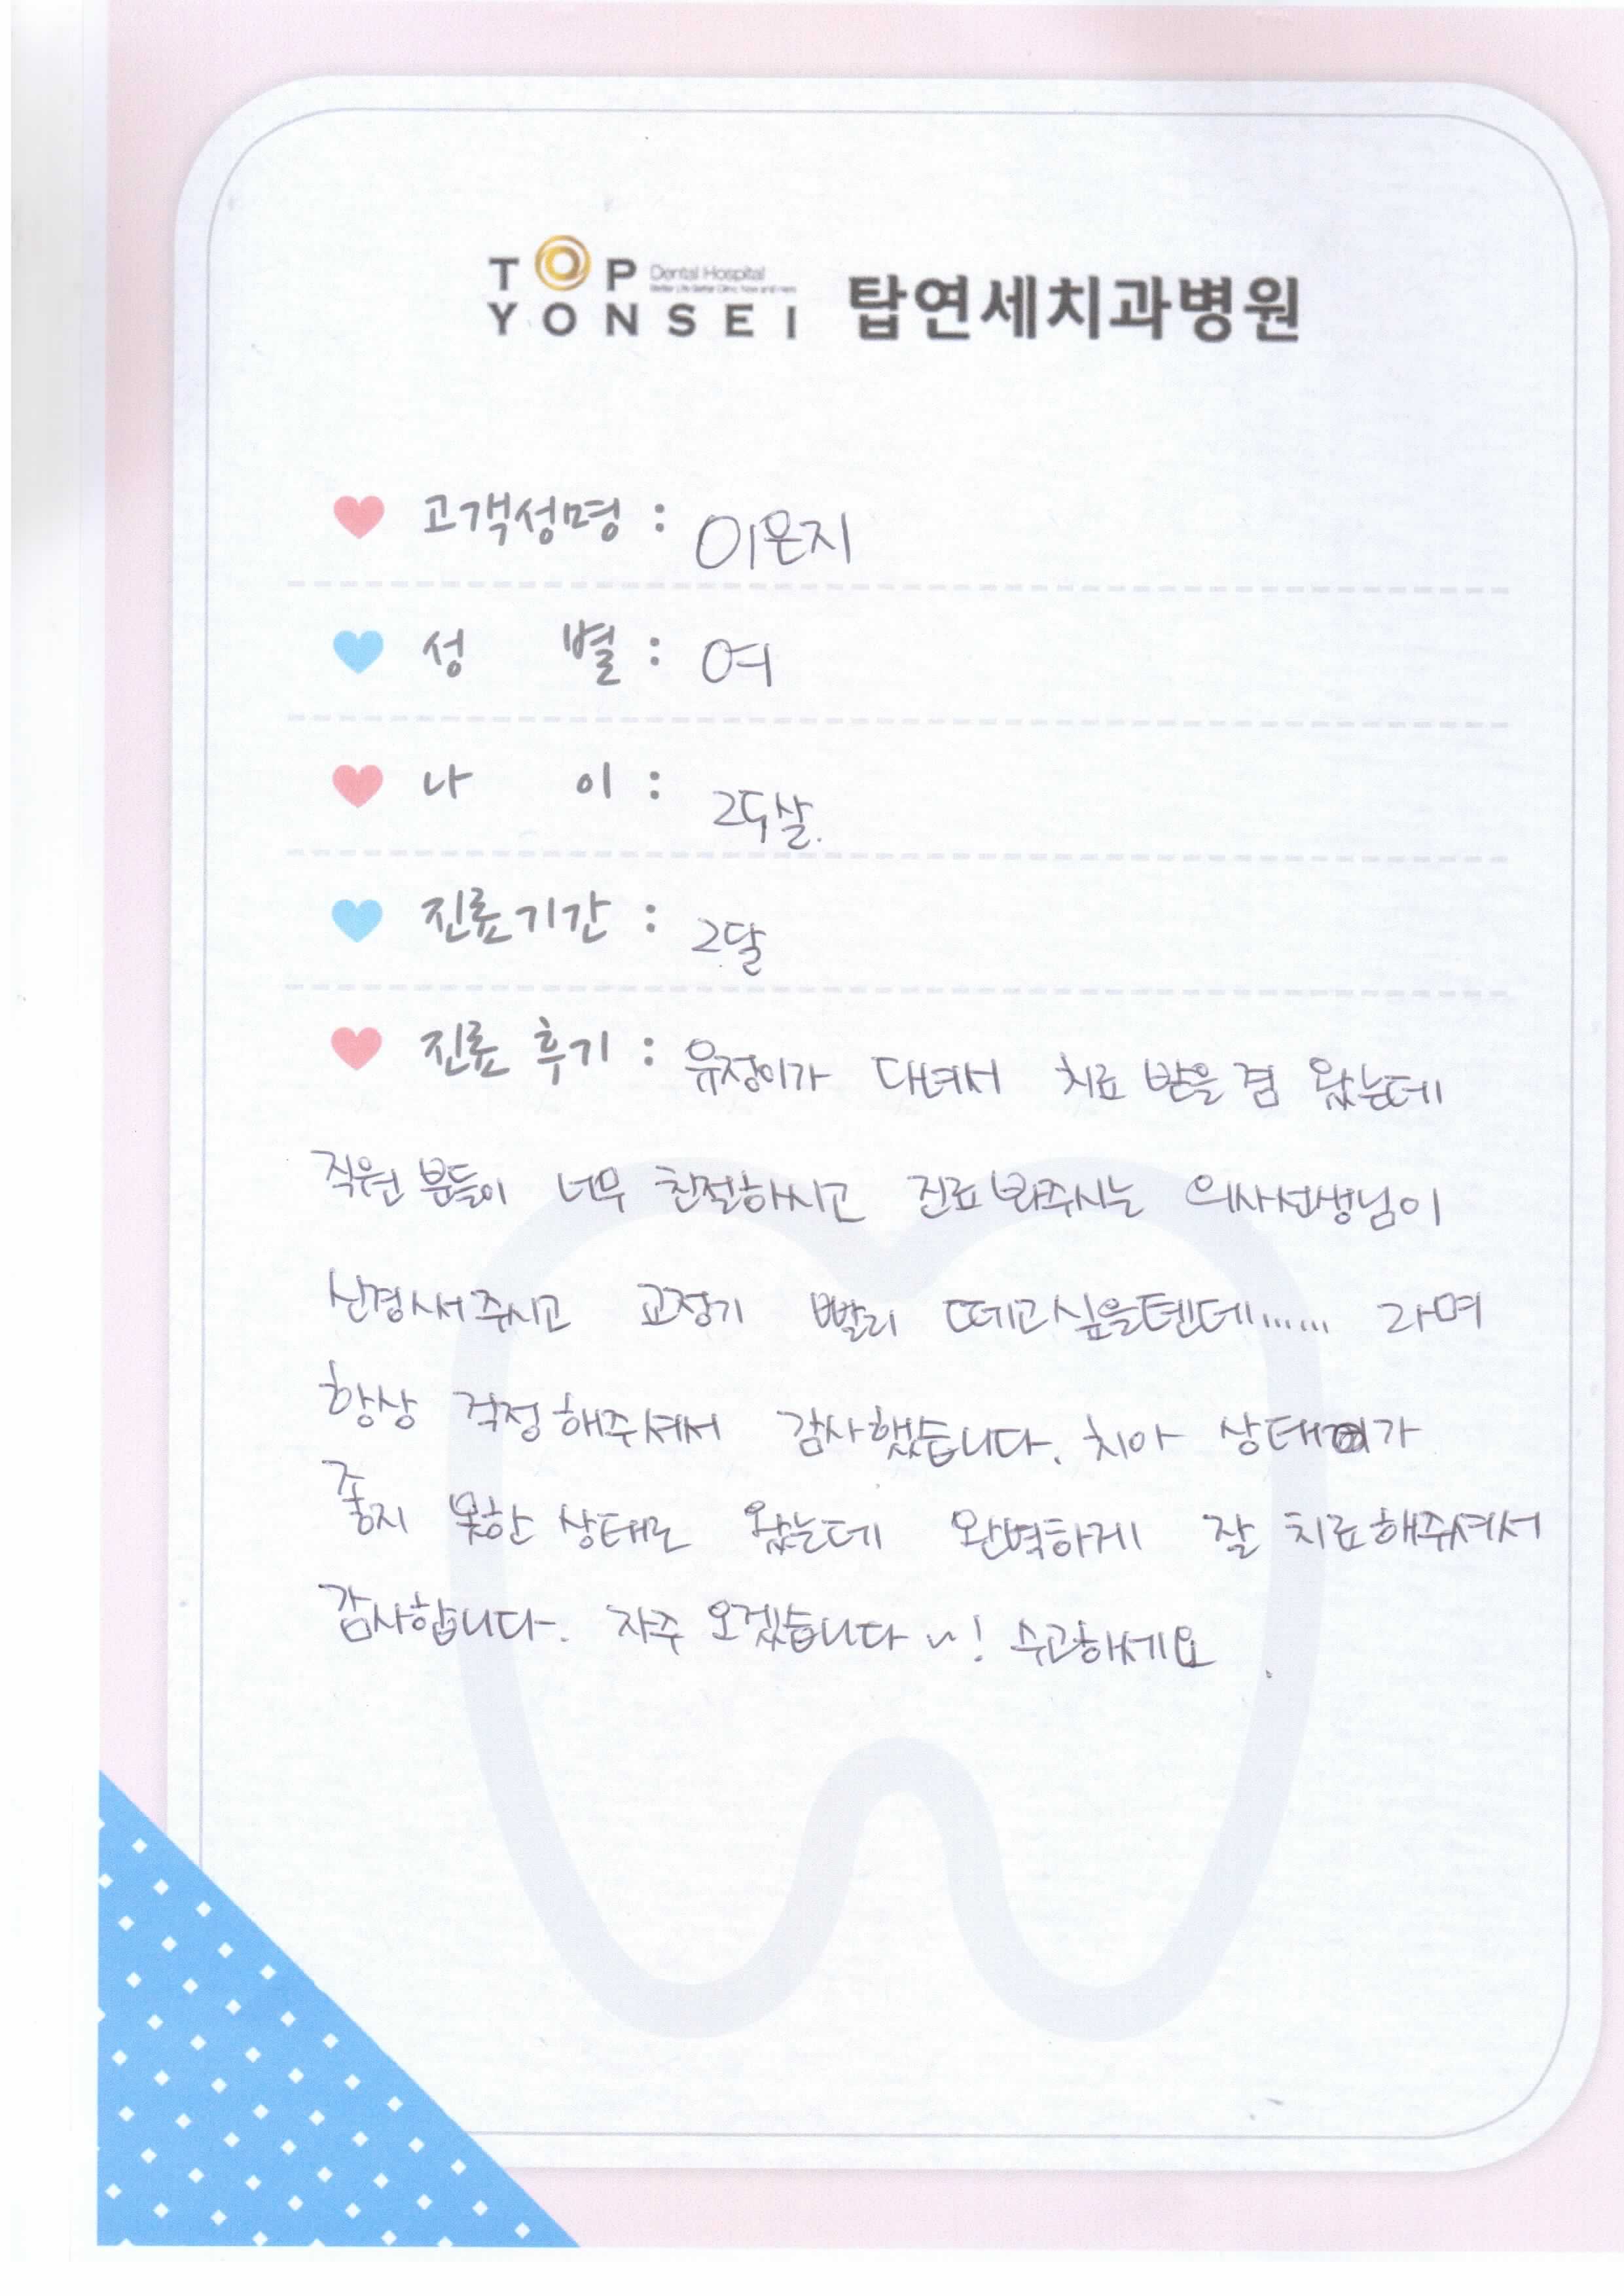 TOP Dental Hospital
YONSEI 탑연세치과병원
고객성명 : 이은지
성 별 : 여
나 이 : 살.
진료기간 : 2달
진료 후기 : 유정이가 다녀서 치료 받을 겸 왔는데
직원 분들이 너무 친절하시고 진료 봐주시는 의사선생님이
신경써주시고 교정기 빨리 떼고싶을텐데...... 라며
항상 걱정해주셔서 감사했습니다. 치아 상태가
좋지 못한 상태로 왔는데 완벽하게 잘 치료해주셔서
감사합니다. 자주 오겠습니다~! 수고하세요.